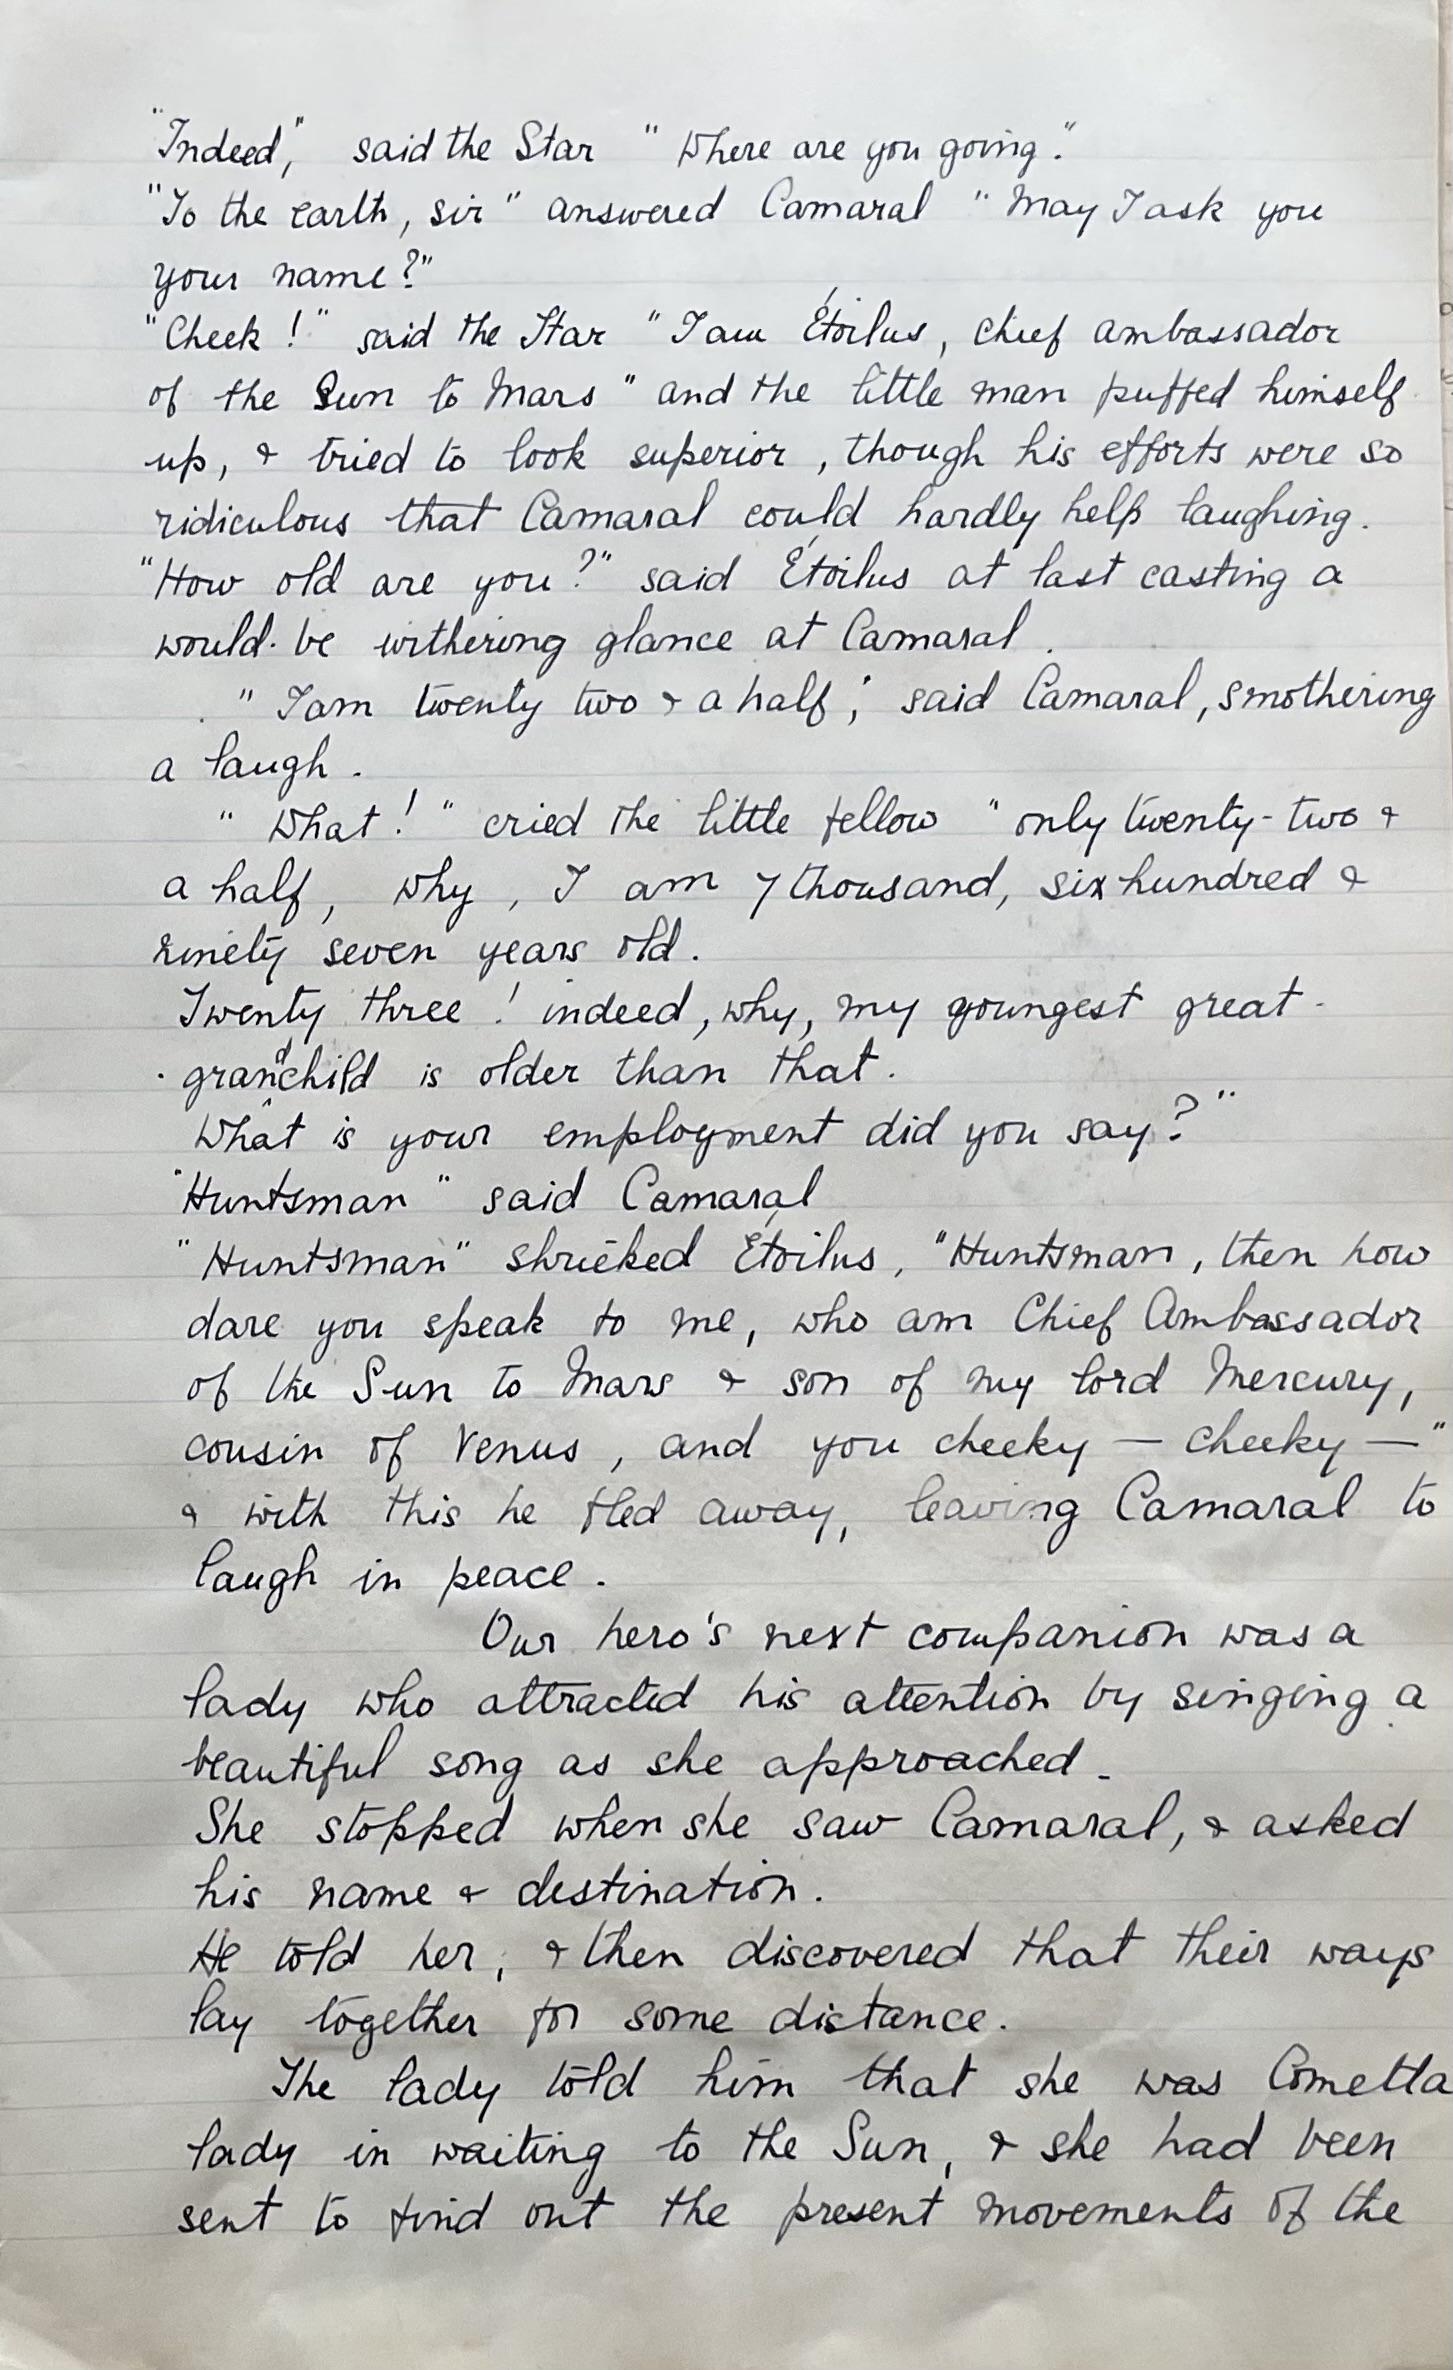 "Indeed," said the Star "Where are you going."
"To the earth, sir" answered Camaral "May I ask you
your name?"
"Cheek!" said the Star "I am Étoilus, chief ambassador
of the Sun to Mars" and the little man puffed himself
up, & tried to look superior, though his efforts were so
ridiculous that Camaral could hardly help laughing.
"How old are you?" said Étoilus at last casting a
would-be withering glance at Camaral.
"I am twenty two & a half", said Camaral, smothering
a laugh.
"What!" cried the little fellow "only twenty-two &
a half, why, I am 7 thousand, six hundred &
ninety seven years old.
Twenty three! indeed, why, my youngest great-
-grandchild is older than that.
What is your employment did you say?"
"Huntsman" said Camaral
"Huntsman" shrieked Étoilus, "Huntsman, then how
dare you speak to me, who am Chief Ambassador
of the Sun to Mars & son of my lord Mercury,
cousin of Venus, and you cheeky — cheeky —"
& with this he fled away, leaving Camaral to
laugh in peace.
Our hero's next companion was a
lady who attracted his attention by singing a
beautiful song as she approached.
She stopped when she saw Camaral, & asked
his name & destination.
He told her, & then discovered that their ways
lay together for some distance.
The lady told him that she was Cometta
lady in waiting to the Sun, & she had been
sent to find out the present movements of the